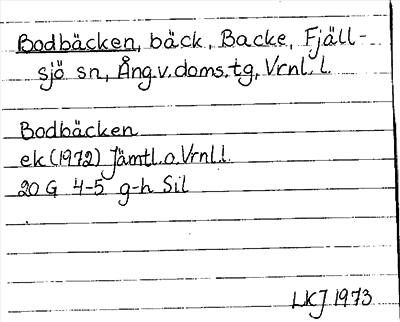 Bodbäcken, bäck, Backe, Fjäll-
sjö sn, Ång.v.doms.tg, Vrnl. l.
Bodbäcken
ek (1972) Jämtl.o.Vrnl.l.
20 G 4-5 g-h Sil
LKJ 1973